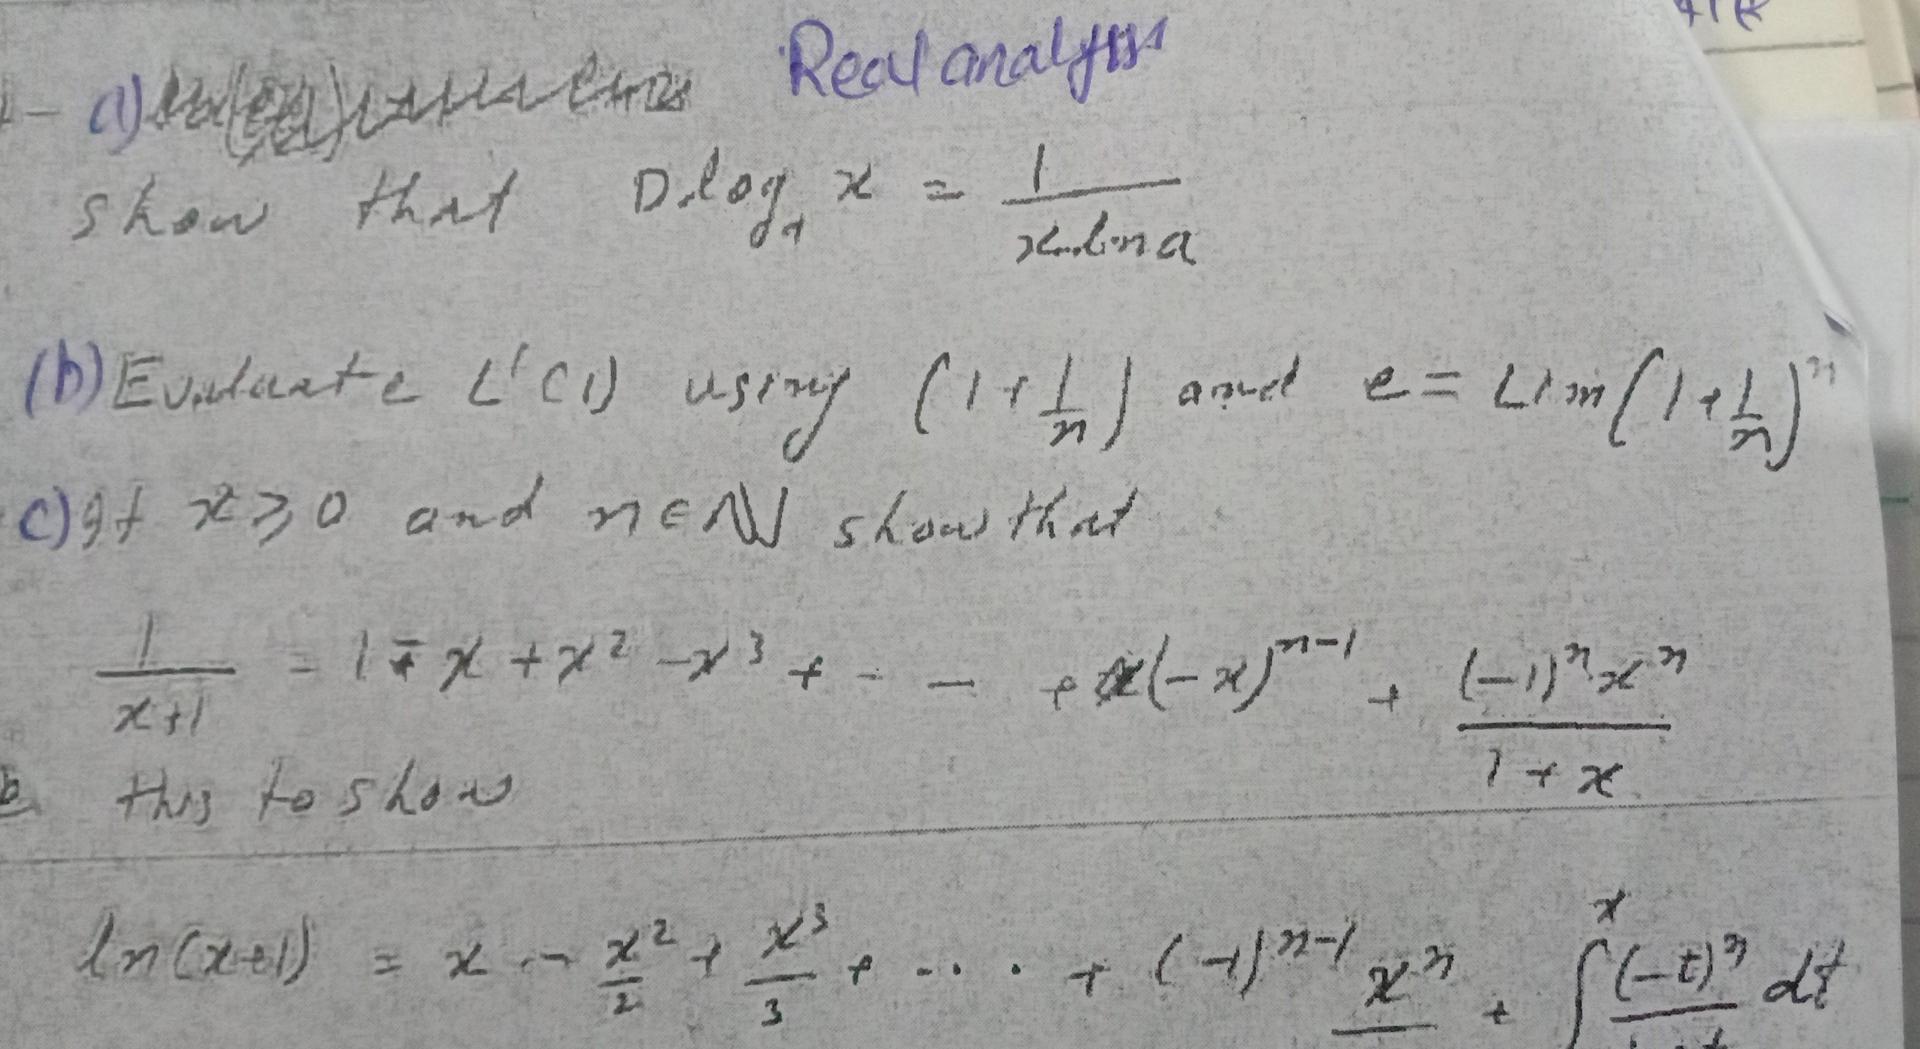 Real analysis
a)
show that D.log_a x = 1/(x.ln a)
(b) Evaluate L'(1) using (1+1/n) and e = Lim(1+1/n)^n
c) If x ≥ 0 and n ∈ ℕ show that
1/(x+1) = 1 - x + x² - x³ + - - + (-x)^(n-1) + (-1)^n x^n/(1+x)
this to show
ln(x+1) = x - x²/2 + x³/3 + .... + (-1)^(n-1) x^n + ∫^x (-t)^n dt